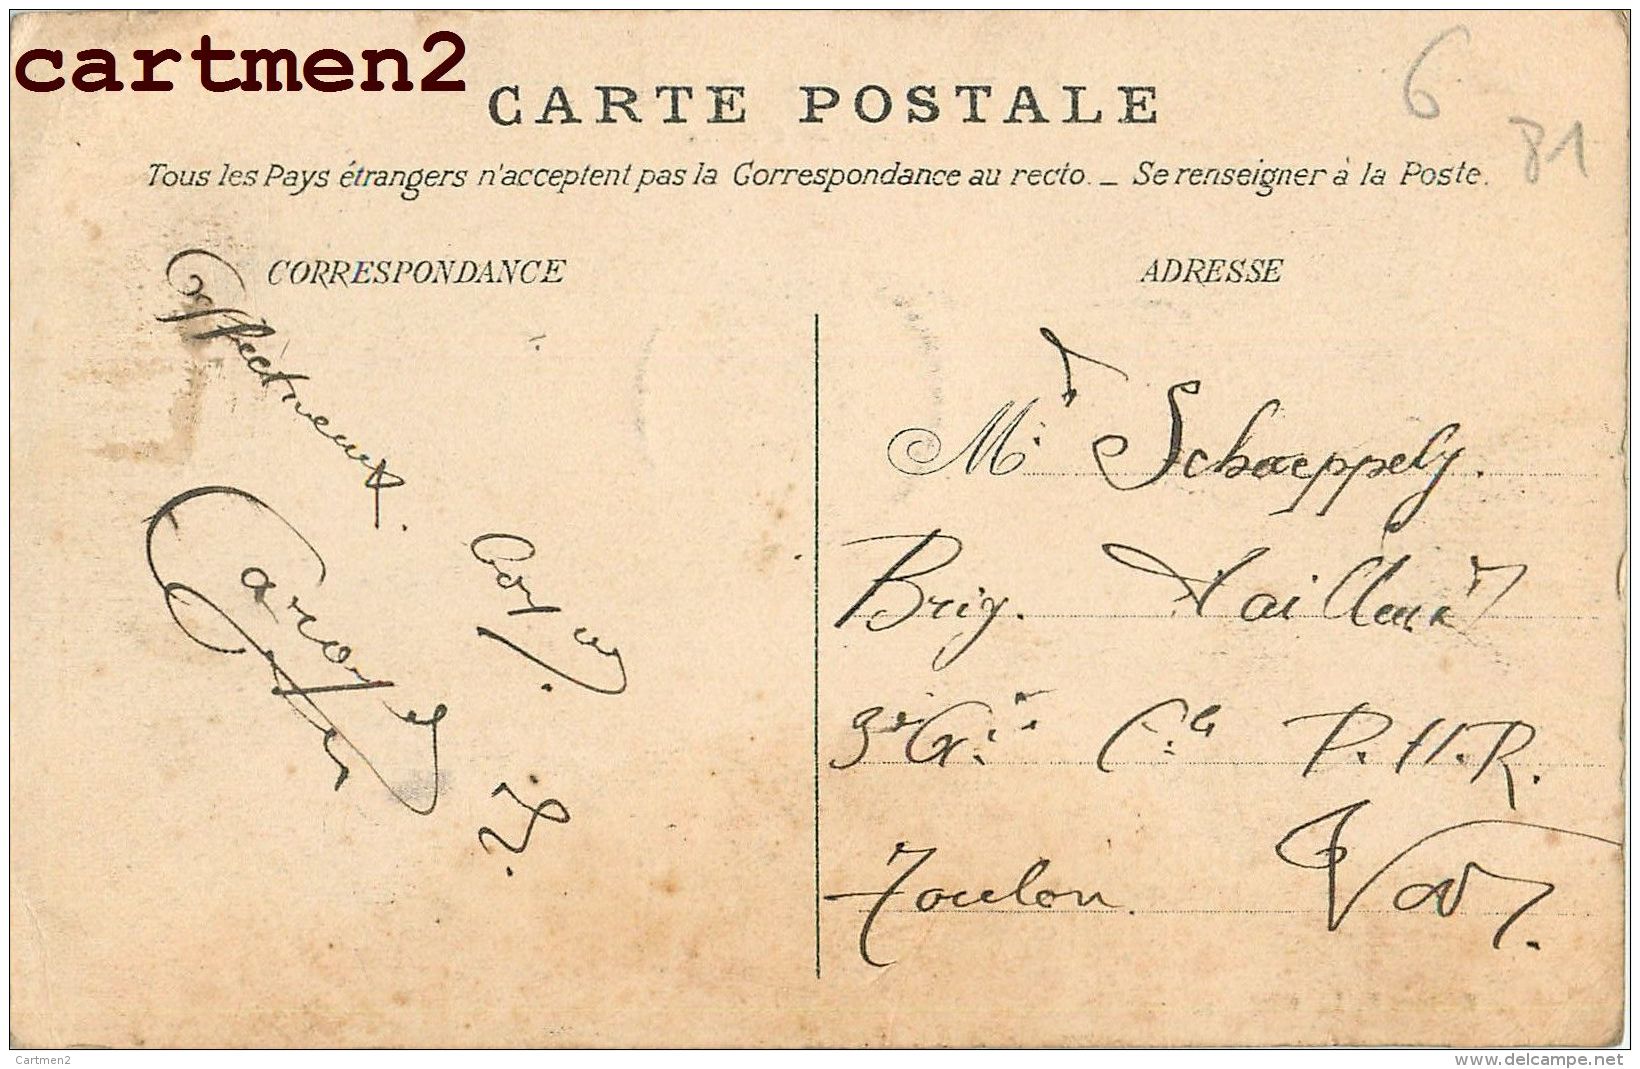 cartmen2
CARTE POSTALE
6
81
Tous les Pays étrangers n'acceptent pas la Correspondance au recto. _ Se renseigner à la Poste.
CORRESPONDANCE
Affectueux
ADRESSE
Mr Schaeppely.
Brig. Tailleur
3e Cie P.H.R.
Toulon. Var.
Cartmen2
www.delcampe.net